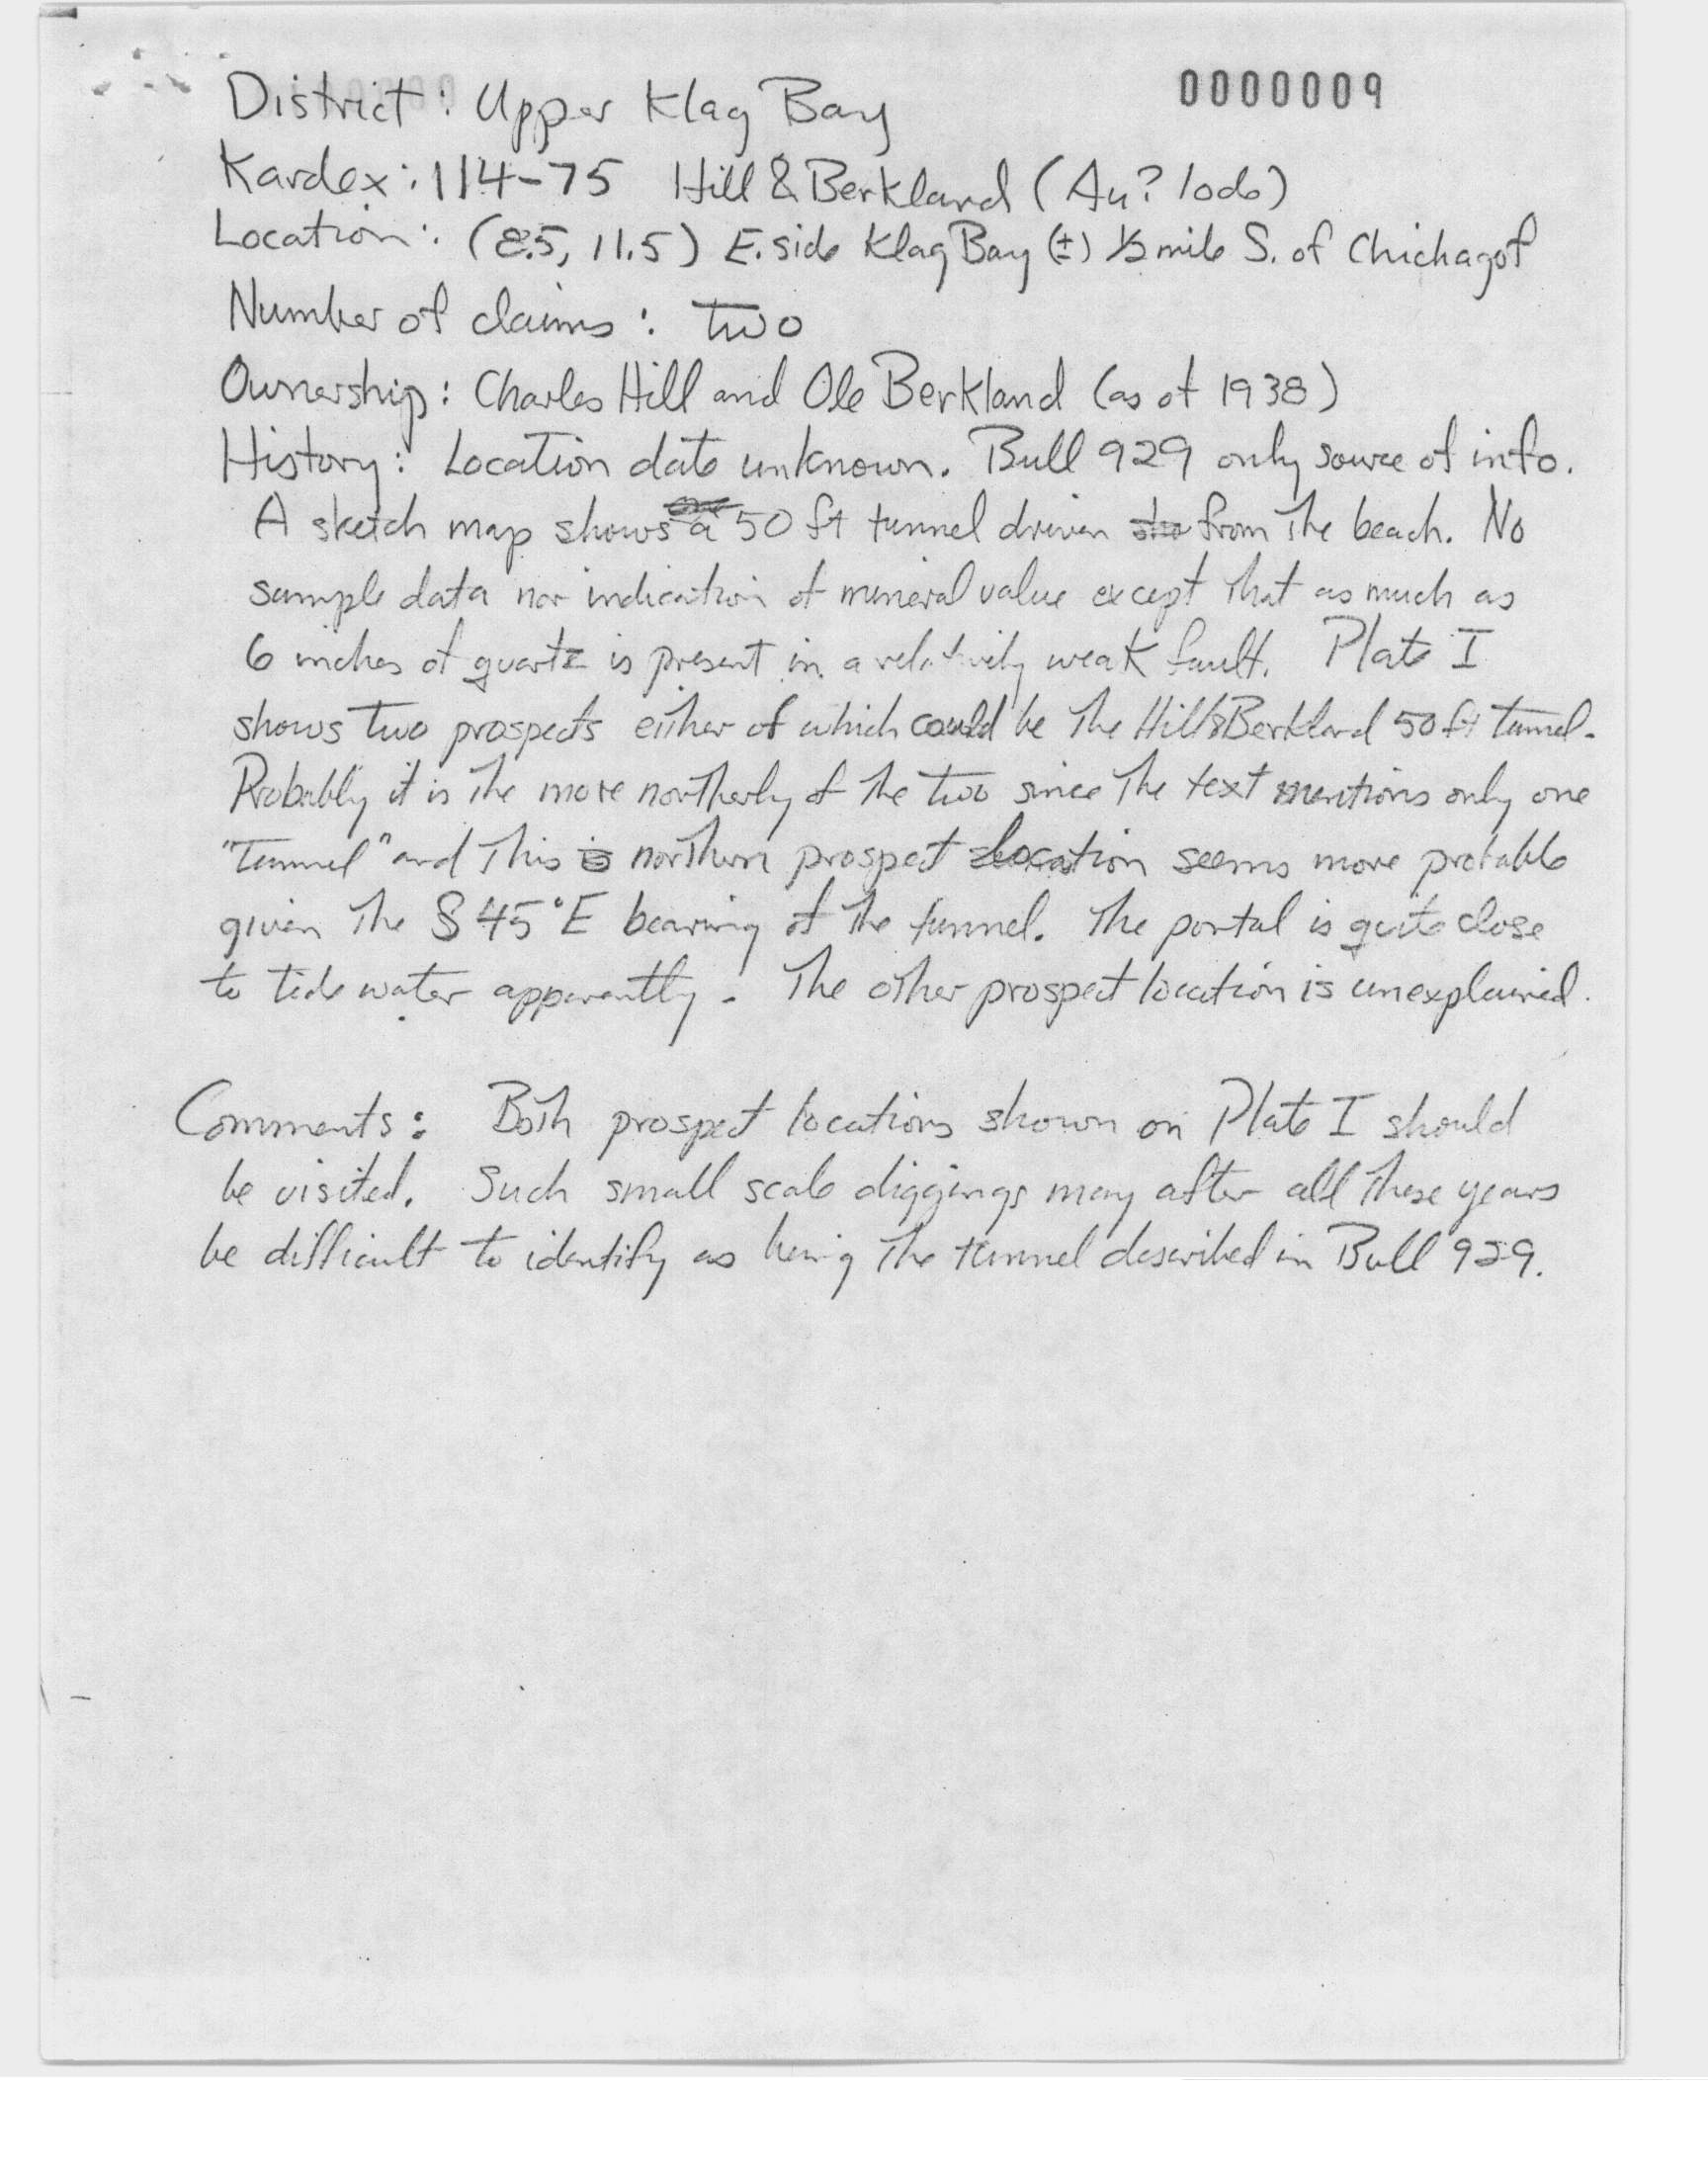 0000009
District: Upper Klag Bay
Kardex: 114-75 Hill & Berkland (Au? lode)
Location: (8.5, 11.5) E. side Klag Bay (±) ½ mile S. of Chichagof
Number of claims: two
Ownership: Charles Hill and Ole Berkland (as of 1938)
History: Location date unknown. Bull 929 only source of info.
A sketch map shows a 50 ft tunnel driven from the beach. No
sample data nor indication of mineral value except that as much as
6 inches of quartz is present in a relatively weak fault. Plate I
shows two prospects either of which could be the Hill & Berkland 50 ft tunnel.
Probably it is the more northerly of the two since the text mentions only one
"tunnel" and this northern prospect location seems more probable
given the S 45° E bearing of the tunnel. The portal is quite close
to tide water apparently. The other prospect location is unexplained.
Comments: Both prospect locations shown on Plate I should
be visited. Such small scale diggings may after all these years
be difficult to identify as being the tunnel described in Bull 929.